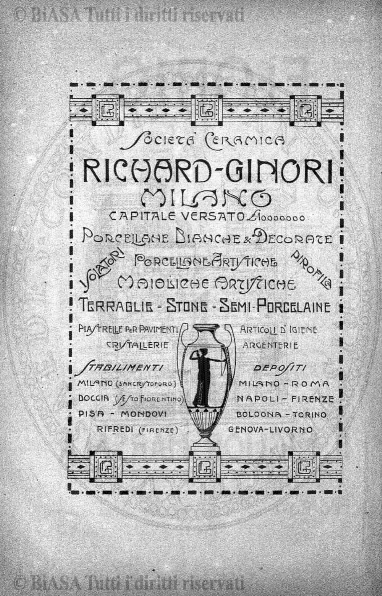 © BiASA Tutti i diritti riservati
SOCIETÀ CERAMICA
RICHARD-GINORI
MILANO
CAPITALE VERSATO L.10000000
PORCELLANE BIANCHE & DECORATE
ISOLATORI
PORCELLANE ARTISTICHE
PIROFILA
MAIOLICHE ARTISTICHE
TERRAGLIE - STONE - SEMI-PORCELAINE
PIASTRELLE PER PAVIMENTI ARTICOLI D'IGIENE
CRISTALLERIE ARGENTERIE
STABILIMENTI DEPOSITI
MILANO (SANCRISTOFORO) MILANO - ROMA
DOCCIA (SESTO FIORENTINO) NAPOLI - FIRENZE
PISA - MONDOVI BOLOGNA - TORINO
RIFREDI (FIRENZE) GENOVA - LIVORNO
© BiASA Tutti i diritti riservati